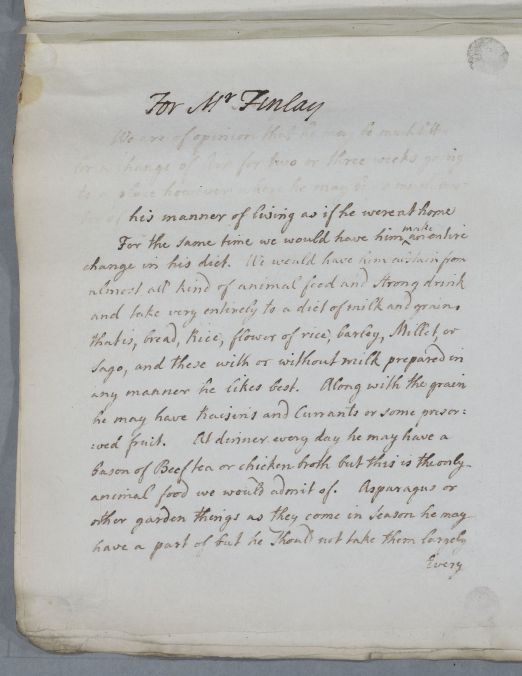 For Mr Finlay
We are of opinion that he may be much the
for a change of Air for two or three weeks going
to a place however where he may be as much
of his manner of living as if he were at home
For the same time we would have him make an entire
change in his diet. We would have him abstain from
almost all kind of animal food and strong drink
and take very entirely to a diet of milk and grains
that is, bread, Rice, flower of rice, barley, Millet, or
Sago, and these with or without milk prepared in
any manner he likes best. Along with the grain
he may have Raisins and Currants or some preser:
:ved fruit. At dinner every day he may have a
bason of Beef tea or chicken broth but this is the only
animal food we would admit of. Asparagus or
other garden things as they come in season he may
have a part of but he should not take them largely
Every